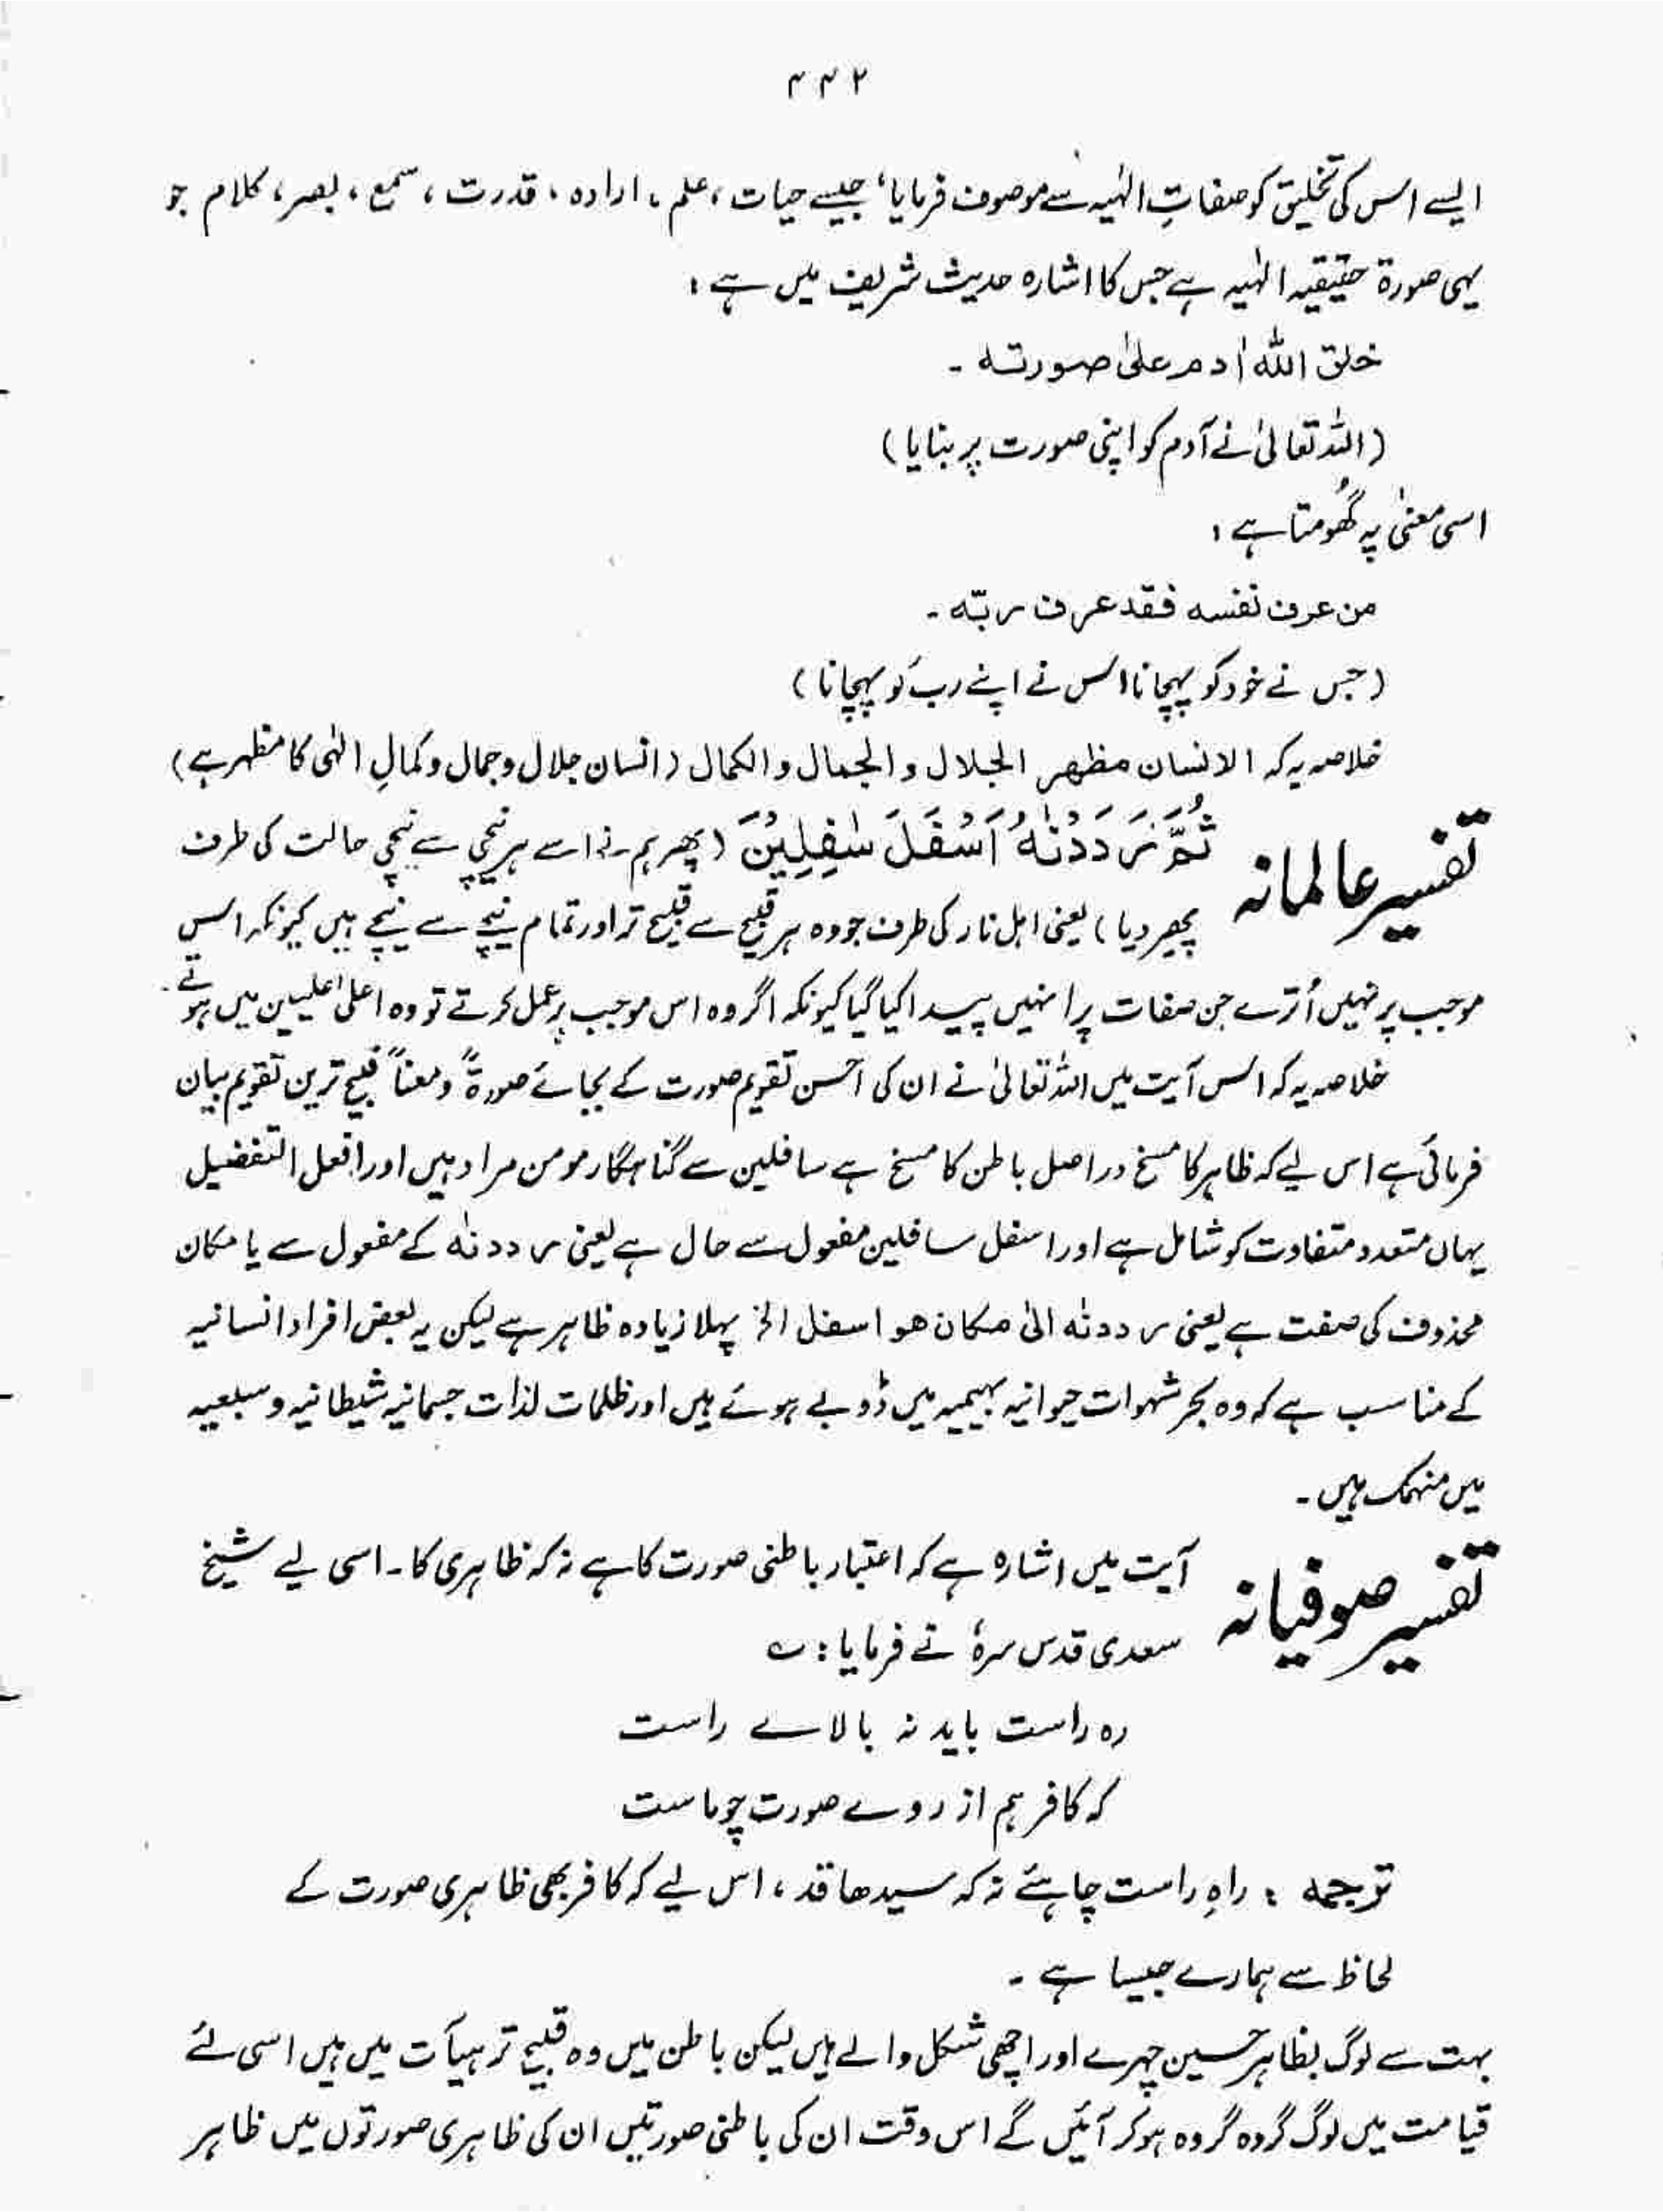 ۴۴۲
ایسے اس کی تخلیق کو صفاتِ الٰہیہ سے موصوف فرمایا، جیسے حیات، علم، ارادہ، قدرت، سمع، بصر، کلام جو
یہی صورۃ حقیقیہ الٰہیہ ہے جس کا اشارہ حدیث شریف میں ہے:
خلق اللہ اٰدم علیٰ صورتہ۔
(اللہ تعالیٰ نے آدم کو اپنی صورت پر بنایا)
اسی معنیٰ پہ گھُومتا ہے:
من عرف نفسه فقد عرف ربّه۔
(جس نے خود کو پہچانا اس نے اپنے رب کو پہچانا)
خلاصہ یہ کہ الانسان مظھر الجلال و الجمال و الکمال (انسان جلال و جمال و کمالِ الٰہی کا مظہر ہے)
تفسیر عالمانہ ثُمَّ رَدَدْنٰهُ اَسْفَلَ سٰفِلِیْنَ (پھر ہم نے اسے ہر نیچی سے نیچی حالت کی طرف
پھیر دیا) یعنی اہل نار کی طرف جو وہ ہر قبیح سے قبیح تر اور تمام نیچے سے نیچے ہیں کیونکہ اس
موجب پر نہیں اُترے جن صفات پر انہیں پیدا کیا گیا کیونکہ اگر وہ اس موجب پر عمل کرتے تو وہ اعلیٰ علیین میں ہوتے۔
خلاصہ یہ کہ اس آیت میں اللہ تعالیٰ نے ان کی احسن تقویم صورت کے بجائے صورۃً و معناً قبیح ترین تقویم بیان
فرمائی ہے اس لیے کہ ظاہر کا مسخ دراصل باطن کا مسخ ہے سافلین سے گناہگار مومن مراد ہیں اور افعل التفضیل
یہاں متعدد متفاوت کو شامل ہے اور اسفل سافلین مفعول سے حال ہے یعنی رددنٰہ کے مفعول سے یا مکان
محذوف کی صفت ہے یعنی رددنٰه الیٰ مکان ھو اسفل الخ پہلا زیادہ ظاہر ہے لیکن یہ بعض افراد انسانیہ
کے مناسب ہے کہ وہ بحر شہوات حیوانیہ بہیمیہ میں ڈوبے ہوئے ہیں اور ظلمات لذات جسمانیہ شیطانیہ و سبعیہ
میں منہمک ہیں۔
تفسیر صوفیانہ آیت میں اشارہ ہے کہ اعتبار باطنی صورت کا ہے نہ کہ ظاہری کا۔ اسی لیے شیخ
سعدی قدس سرہٗ نے فرمایا: ؎
رہ راست باید نہ بالاے راست
کہ کافر ہم از روے صورت چو ماست
ترجمہ: راہِ راست چاہئے نہ کہ سیدھا قد، اس لیے کہ کافر بھی ظاہری صورت کے
لحاظ سے ہمارے جیسا ہے۔
بہت سے لوگ بظاہر حسین چہرے اور اچھی شکل والے ہیں لیکن باطن میں وہ قبیح تر ہیأت میں ہیں اسی لئے
قیامت میں لوگ گروہ گروہ ہو کر آئیں گے اس وقت ان کی باطنی صورتیں ان کی ظاہری صورتوں میں ظاہر